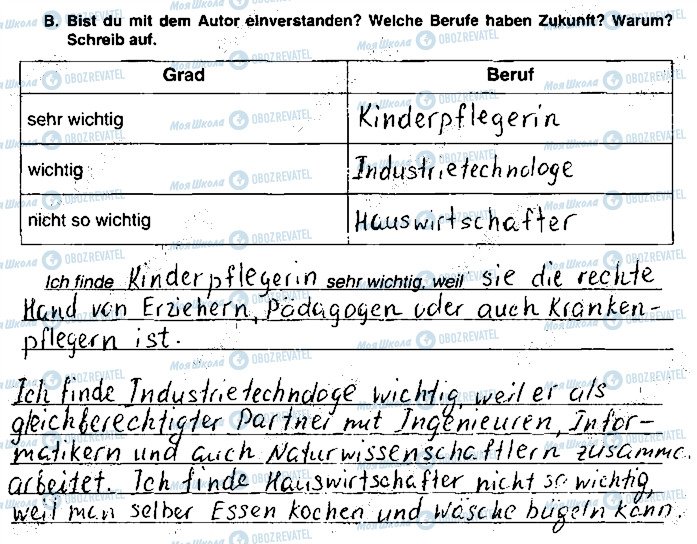 B. Bist du mit dem Autor einverstanden? Welche Berufe haben Zukunft? Warum?
Schreib auf.
Grad Beruf
sehr wichtig Kinderpflegerin
wichtig Industrietechnologe
nicht so wichtig Hauswirtschafter
Ich finde Kinderpflegerin sehr wichtig, weil sie die rechte
Hand von Erziehern, Pädagogen oder auch Kranken-
pflegern ist.
Ich finde Industrietechnologe wichtig, weil er als
gleichberechtigter Partner mit Ingenieuren, Infor-
matikern und auch Naturwissenschaftlern zusamme.
arbeitet. Ich finde Hauswirtschafter nicht so wichtig,
weil man selber Essen kochen und Wäsche bügeln kann.